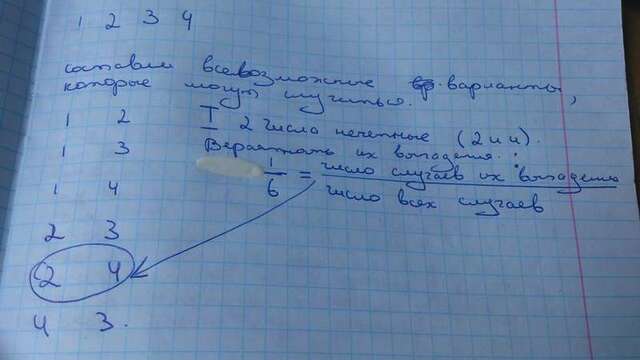 1 2 3 4
составим всевозможные варианты,
которые могут случиться.
1 2 I 2 числа нечетные (2 и 4).
1 3 Вероятность их выпадения:
1 4 1/6 = число случаев их выпадения / число всех случаев
2 3
2 4
4 3.